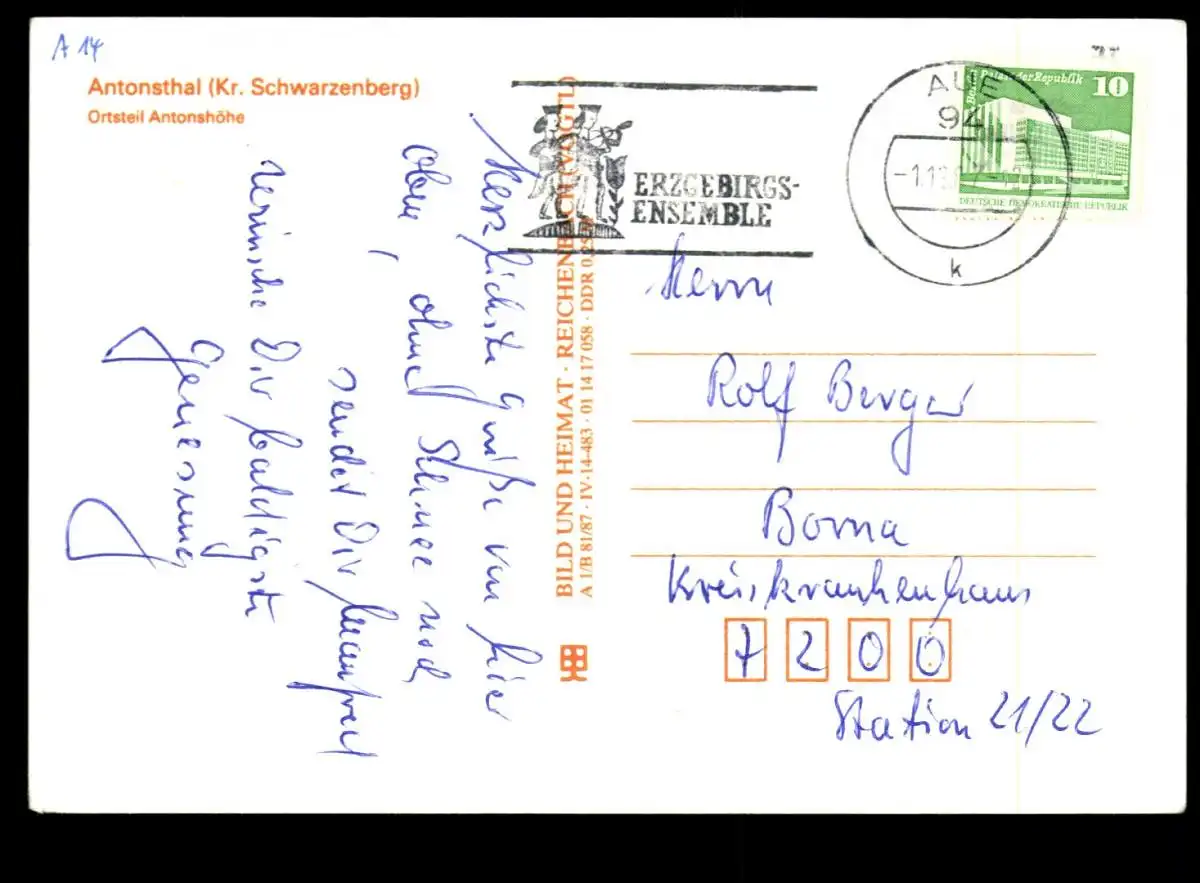 A 14
Antonsthal (Kr. Schwarzenberg)
Ortsteil Antonshöhe
Herzlichste Grüße von hier
oben, ohne Schnee noch
sendet Dir Manfred
wünsche Dir baldigste
Genesung
BILD UND HEIMAT · REICHENBACH (VOGTL)
A 1/B 81/87 · IV-14-483 · 01 14 17 058 · DDR 0,25
ERZGEBIRGS-
ENSEMBLE
AUE
94
k
Berlin Palast der Republik
10
DEUTSCHE DEMOKRATISCHE REPUBLIK
Herrn
Rolf Berger
Borna
Kreiskrankenhaus
7 2 0 0
Station 21/22